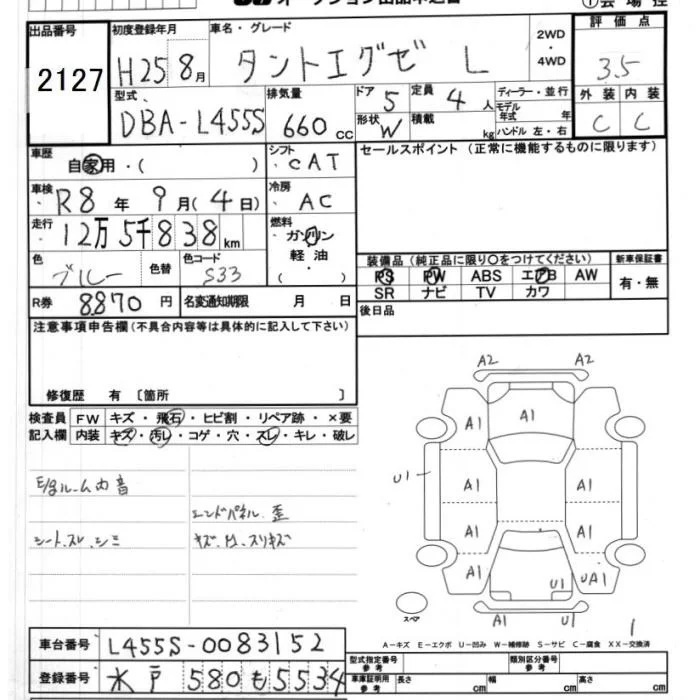 出品番号 初度登録年月 車名・グレード 2WD・4WD 評価点
2127 H25 8月 タントエグゼ L 3.5
型式 排気量 ドア 定員 ディーラー・並行 外装 内装
DBA-L455S 660 cc 5 4人 モデル年式 年 C C
形状 W 積載 kg ハンドル 左・右
車歴 自家用・( ) シフト CAT セールスポイント (正常に機能するものに限ります)
車検 R8年 9月(4日) 冷房 AC
走行 12万5千838km 燃料 ガソリン
軽油・( )
色 ブルー 色替 色コード S33
装備品(純正品に限り○をつけてください) 新車保証書
PS PW ABS エアB AW 有・無
SR ナビ TV カワ
R券 8870円 名変通知期限 月 日 後日品
注意事項申告欄(不具合内容等は具体的に記入して下さい)
修復歴 有 〔箇所 〕
検査員 FW キズ・飛石・ヒビ割・リペア跡・×要
記入欄 内装 キズ・汚レ・コゲ・穴・スレ・キレ・破レ
A2 A2
A1 A1 A1
U1 A1 A1
A1 A1
A1 U1 UA1
A1 U1
E/gルーム内 音
エンドパネル 歪
シート、スレ、シミ
スペア
1
A-キズ E-エクボ U-凹み W-補修跡 S-サビ C-腐食 XX-交換済
車台番号 L455S-0083152
型式指定番号 参考 類別区分番号 参考
登録番号 水戸 580 も 5534
車庫証明用 参考 長さ cm 幅 cm 高さ cm